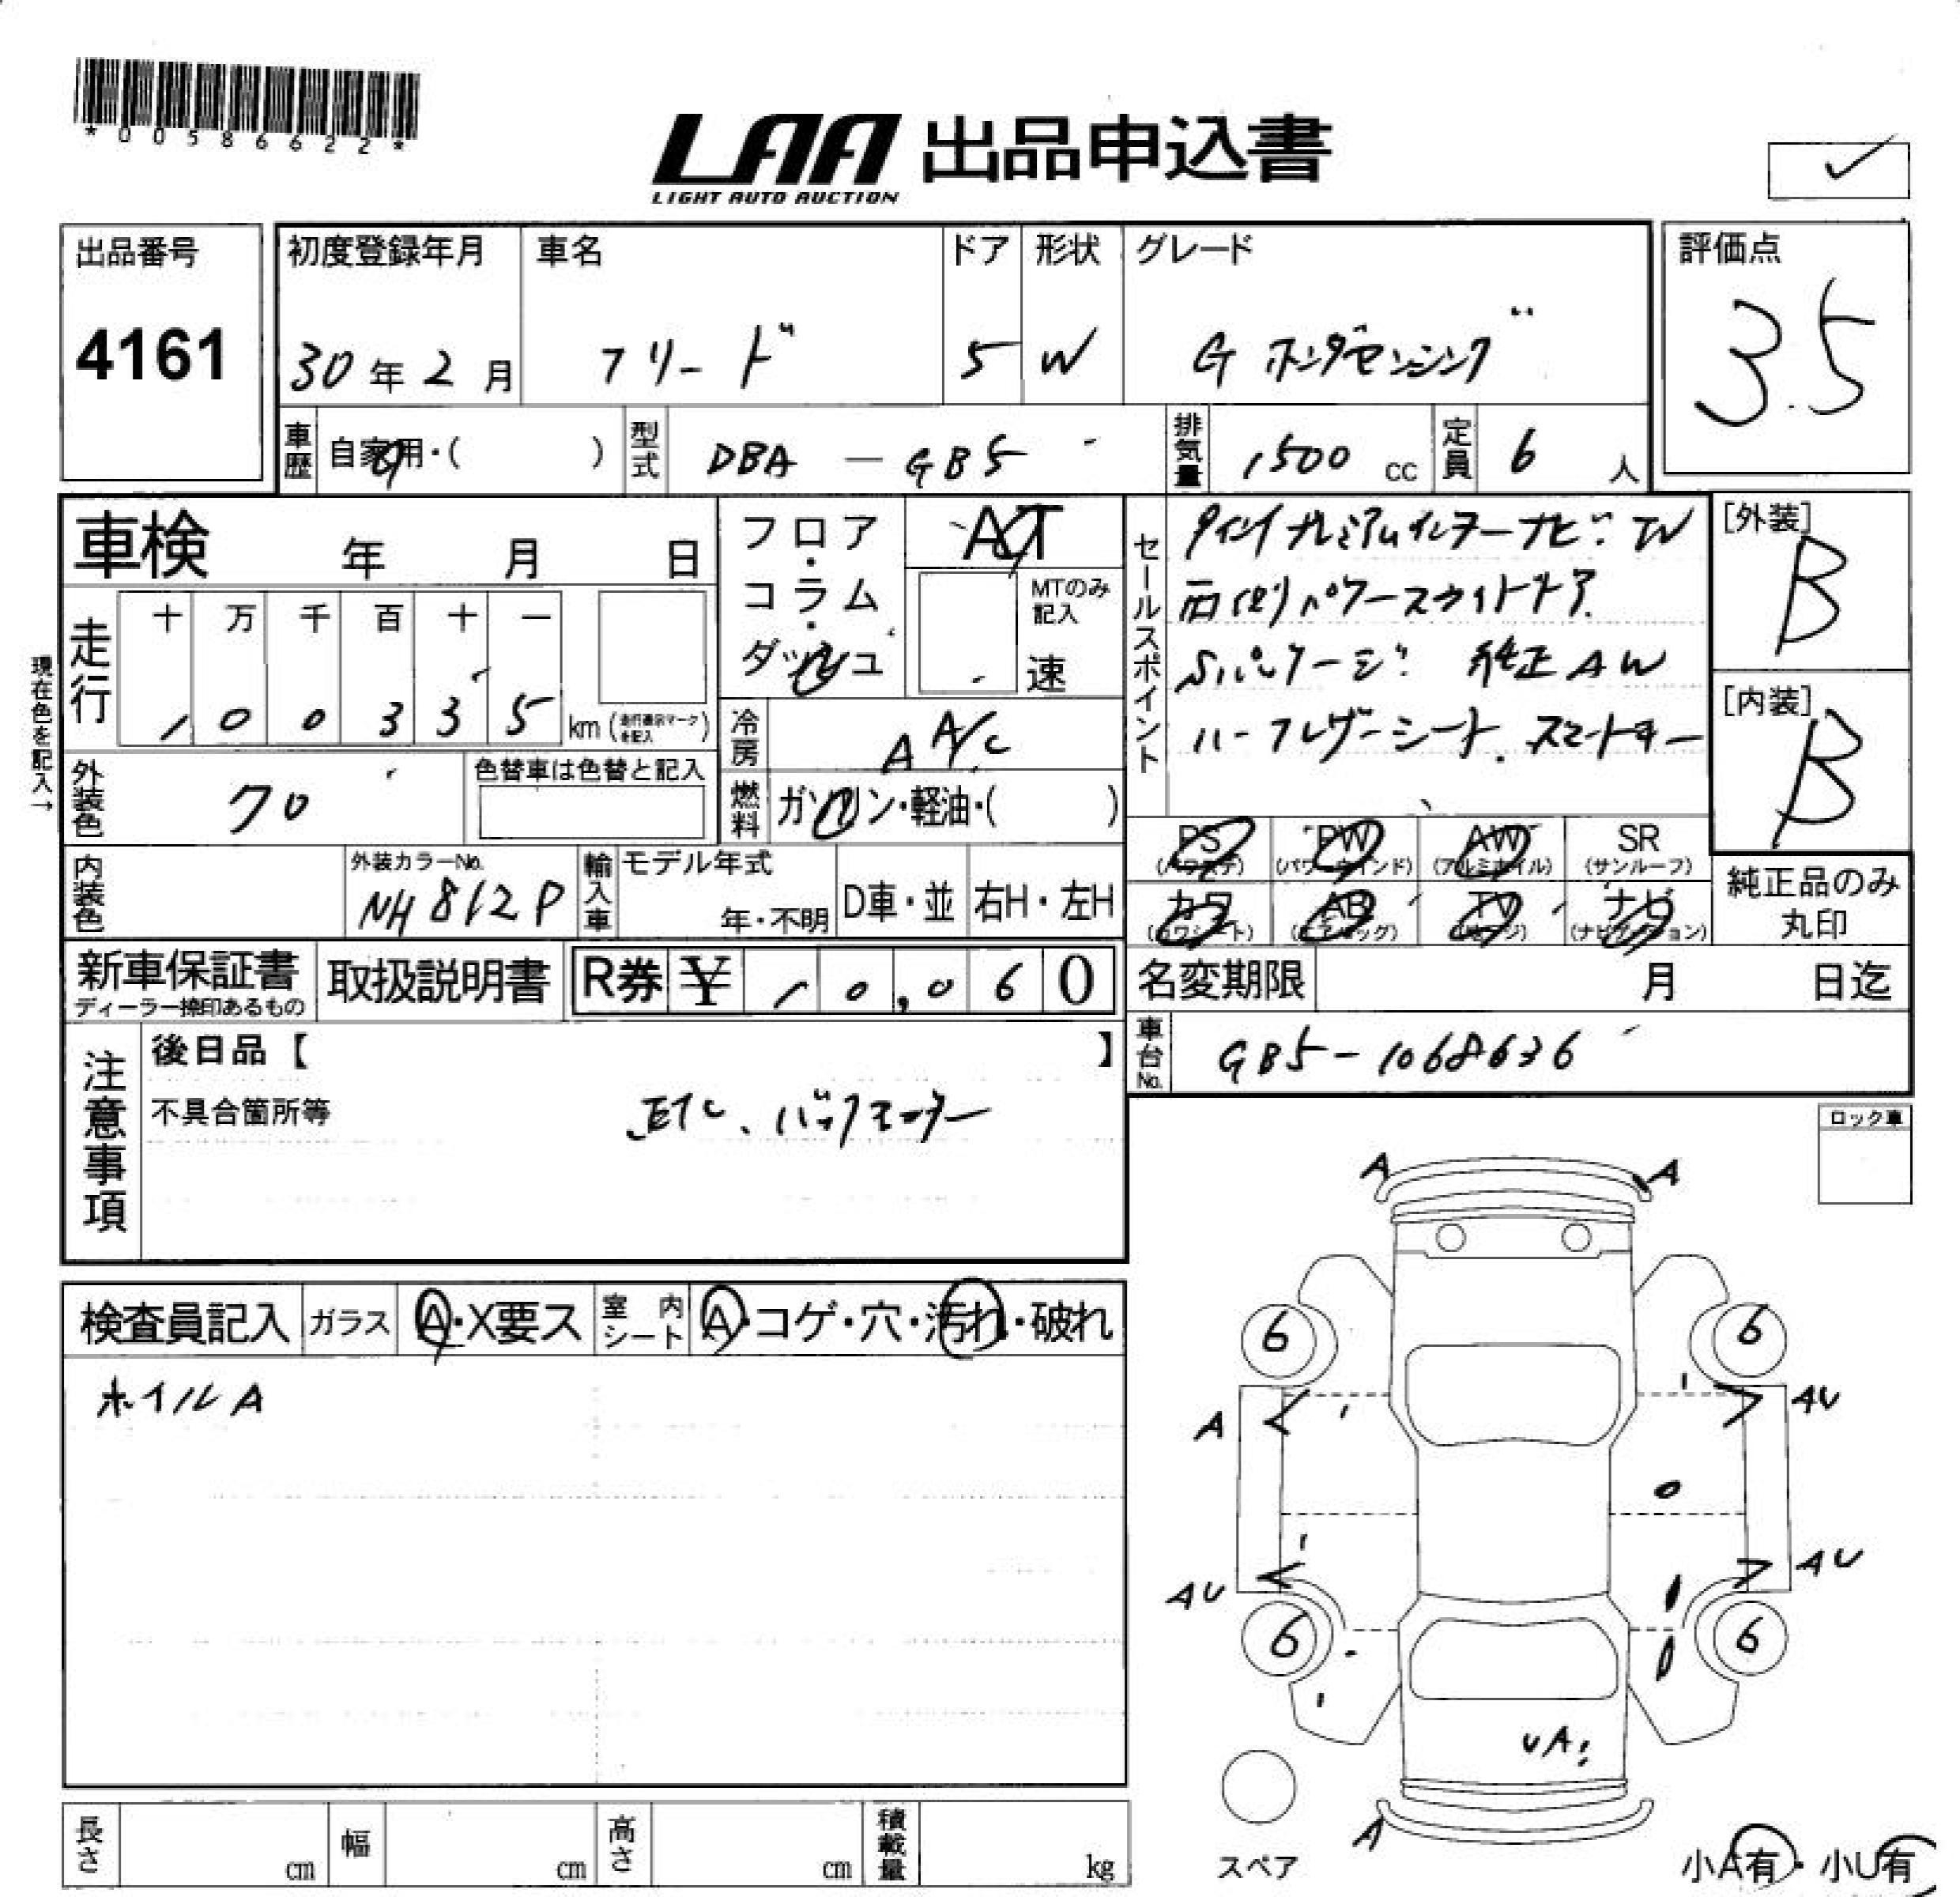 *00586622*
LAA 出品申込書
LIGHT AUTO AUCTION
出品番号
4161
初度登録年月
30年2月
車名
フリード
ドア
5
形状
W
グレード
G ホンダセンシング
評価点
3.5
車歴
自家用・( )
型式
DBA - GB5
排気量
1500 cc
定員
6 人
車検 年 月 日
フロア・コラム・ダッシュ
AT
MTのみ記入
速
セールスポイント
プレミアムインターナビ TV
両側パワースライドドア
Sパッケージ 純正AW
ハーフレザーシート スマートキー
[外装]
B
[内装]
B
現在色を記入→
走行
十 万 千 百 十 一
1 0 0 3 3 5 km (走行表示マークを記入)
冷房
AA/C
外装色
クロ
色替車は色替と記入
燃料
ガソリン・軽油・( )
PS (パワステ)
PW (パワーウインド)
AW (アルミホイル)
SR (サンルーフ)
カワ (カワシート)
AB (エアバッグ)
TV
ナビ (ナビゲーション)
純正品のみ丸印
内装色
外装カラーNo.
NH812P
輸入車
モデル年式
年・不明
D車・並
右H・左H
新車保証書
ディーラー捺印あるもの
取扱説明書
R券 ¥ 10,060
名変期限 月 日迄
車台No.
GB5-1068636
注意事項
後日品【 】
不具合箇所等
ETC、バックモニター
ロック車
検査員記入
ガラス
A・X要ス
室内シート
A・コゲ・穴・汚れ・破れ
ホイルA
A A
6 6
A AU
AU AU
6 6
UA
A
スペア
小A有・小U有
長さ cm
幅 cm
高さ cm
積載量 kg